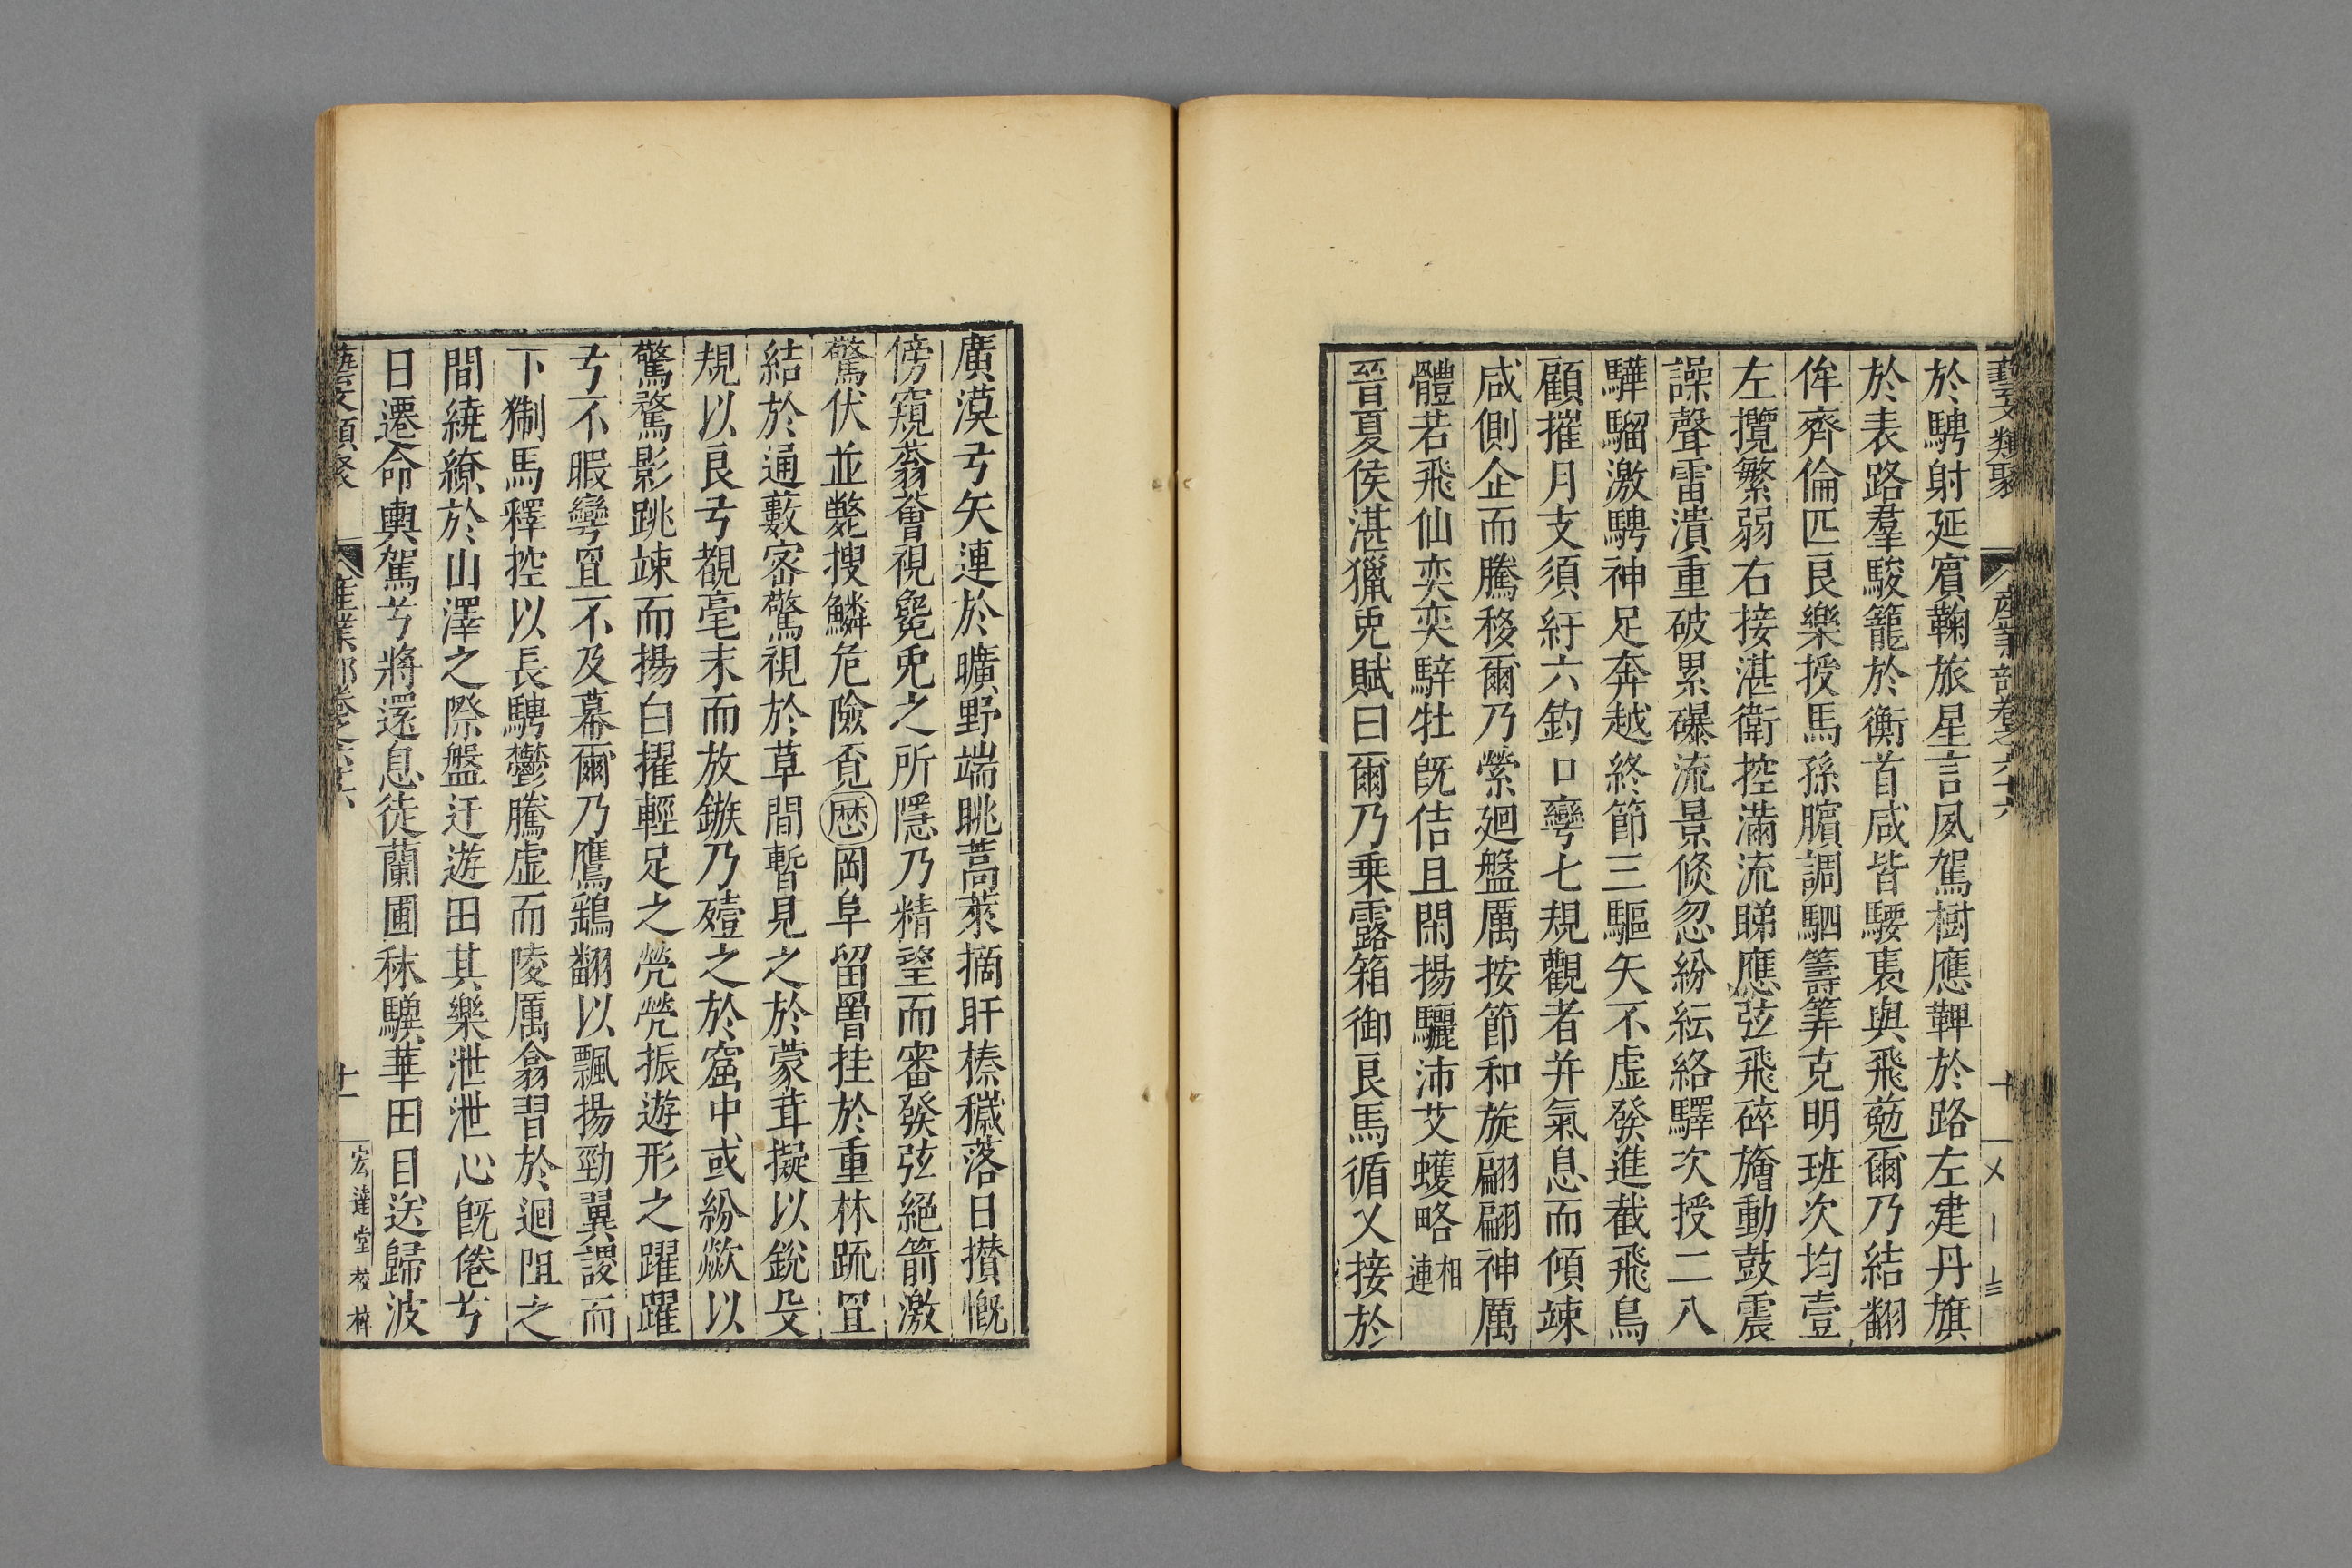 藝文類聚 產業部卷之六十六 十
於騁射延賓鞠旅星言夙駕樹應鞞於路左建丹旗
於表路羣駿籠於衡首咸皆騕褭與飛菟爾乃結翻
侔齊倫匹良樂授馬孫臏調駟籌筭克明班次均壹
左攬繁弱右接湛衛控滿流睇應弦飛碎旝動鼓震
譟聲雷潰重破累礫流景倏忽紛紜絡驛次授二八
驊騮激騁神足奔越終節三驅矢不虛發進截飛鳥
顧摧月支須紆六鈞口彎七規觀者并氣息而傾竦
咸側企而騰移爾乃縈迴盤厲按節和旋翩翩神厲
體若飛仙奕奕騂牡旣佶且閑揚驪沛艾蠖略相連
晉夏侯湛獵兎賦曰爾乃乗露箱御良馬循乂接於
廣漠弓矢連於曠野端眺蒿萊摘盰榛穢落日攢慨
傍窺蓊薈視毚兎之所隱乃精望而審發弦絕箭激
驚伏並斃搜鱗危險覔歷岡阜留罾挂於重林䟽罝
結於通藪密驚視於草間暫見之於蒙茸擬以銳殳
規以良弓覩毫末而放鏃乃殪之於窟中或紛歘以
驚騖影跳竦而揚白擢輕足之煢煢振遊形之躍躍
弓不暇彎罝不及幕爾乃鷹鷂翻以飄揚勁翼謖而
下猘馬釋控以長騁鬱騰虛而陵厲翕習於迴阻之
間繞繚於山澤之際盤迂遊田其樂泄泄心旣倦兮
日遷命輿駕兮將還息徒蘭圃秣驥華田目送歸波
藝文類聚 產業部卷之六十六 十一 宏達堂校梓